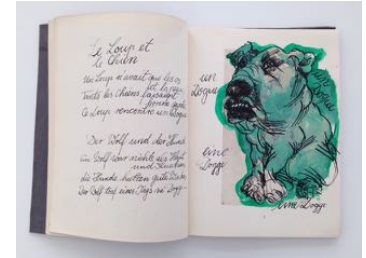 Le Loup et
le Chien
Un Loup n'avait que les os
et la peau
Tants les chiens faisaient
bonne garde
Ce Loup rencontre un Dogue
Der Wolf und der Hund
Ein Wolf war nichts als Haut
und Knochen
die Hunde hatten gute
Der Wolf traf eines Tags
un
Dogue
eine
Dogge
eine Dogge